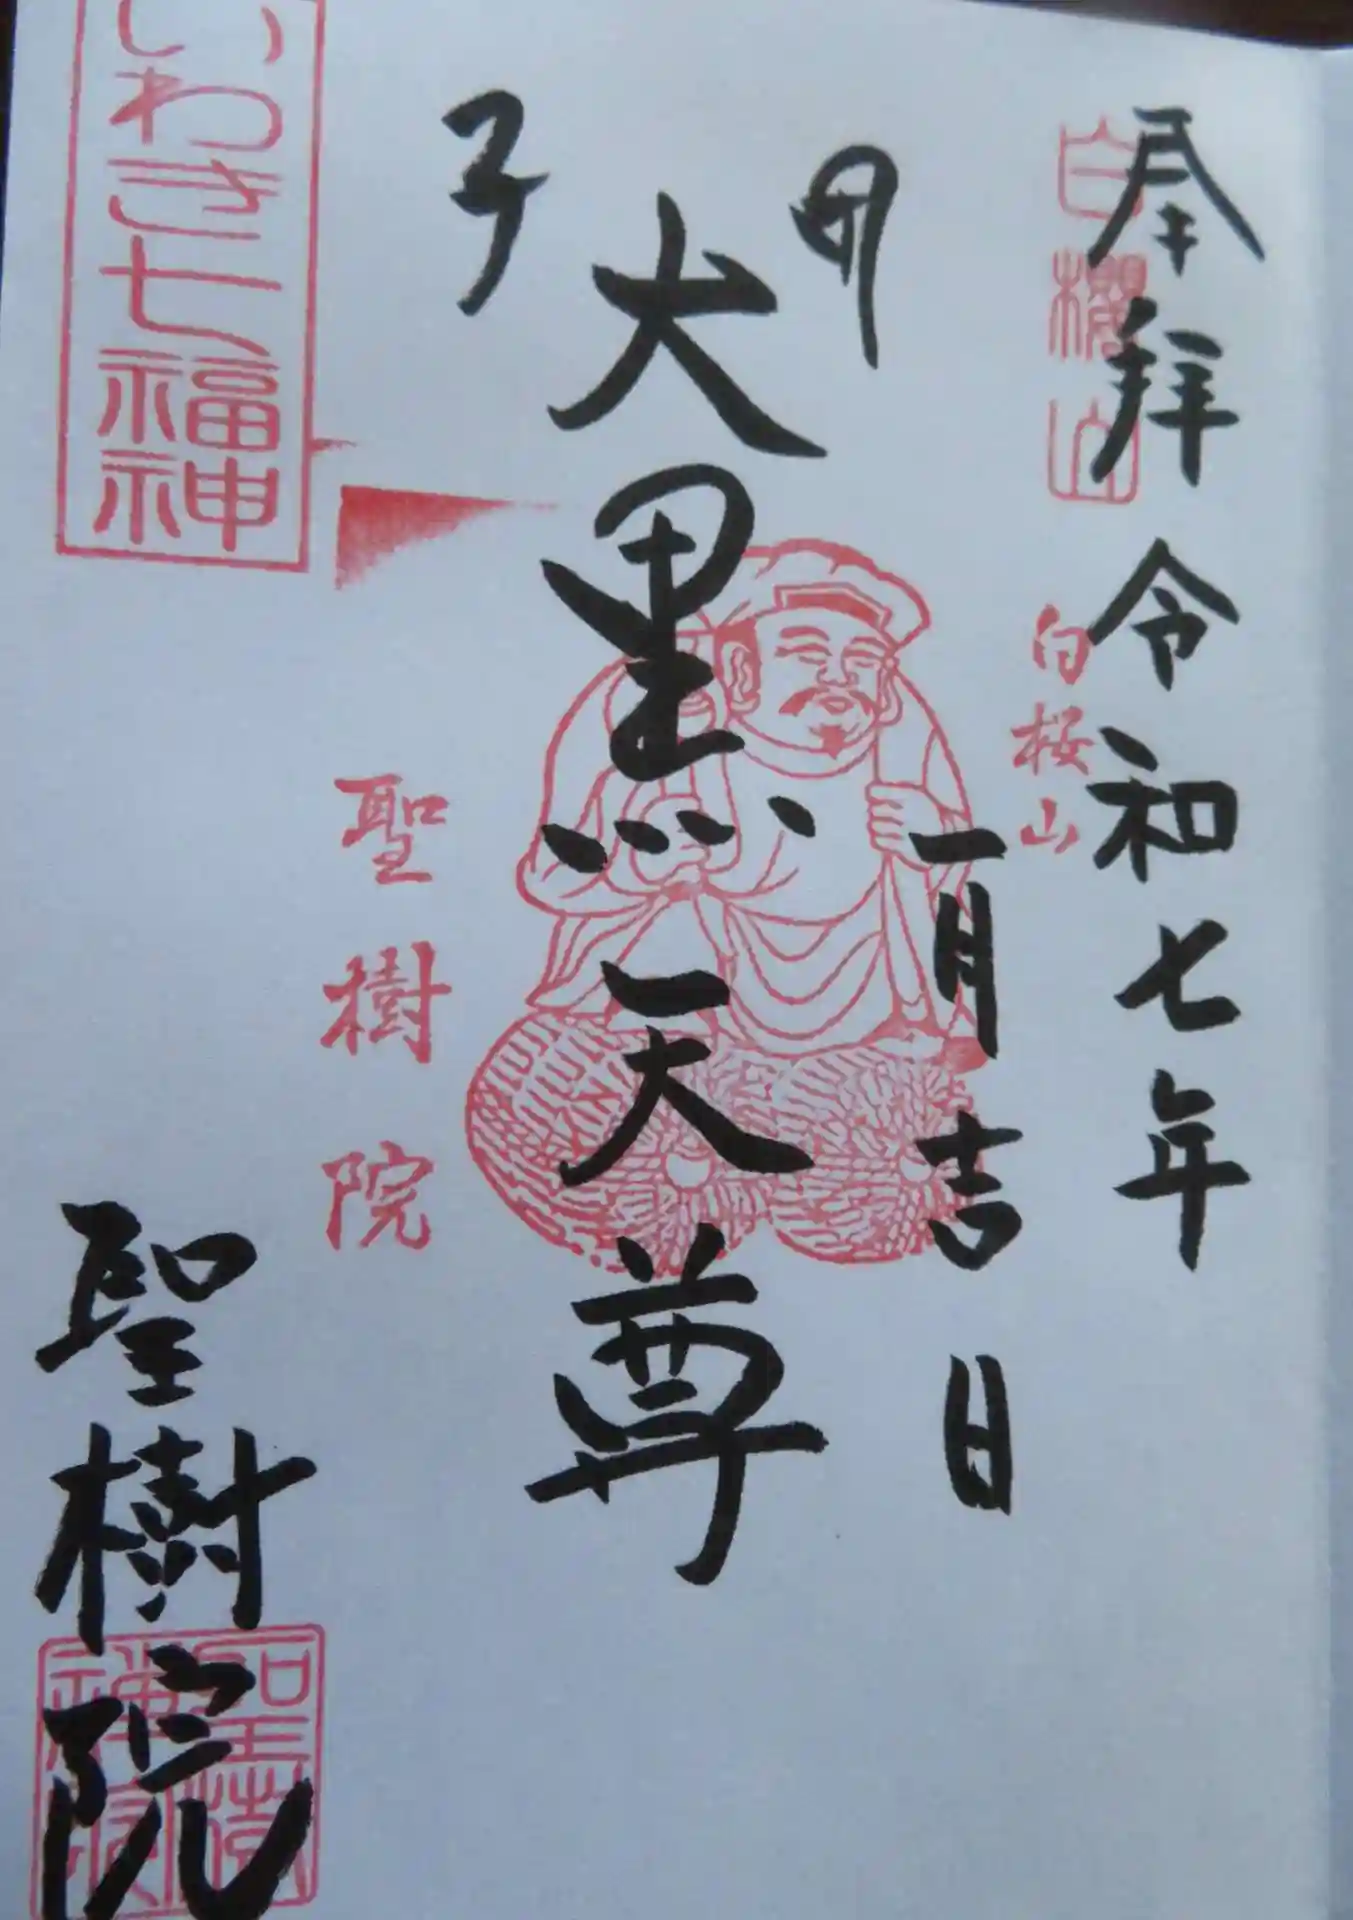 奉拝 令和七年
白櫻山
白桜山
一月吉日
大黒天尊
子
聖樹院
いわき七福神
聖樹院